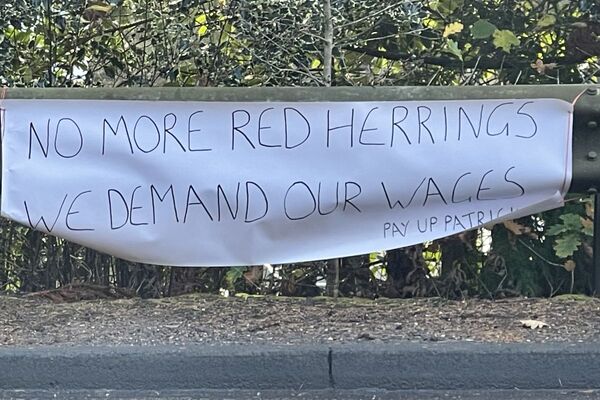 NO MORE RED HERRINGS
WE DEMAND OUR WAGES
PAY UP